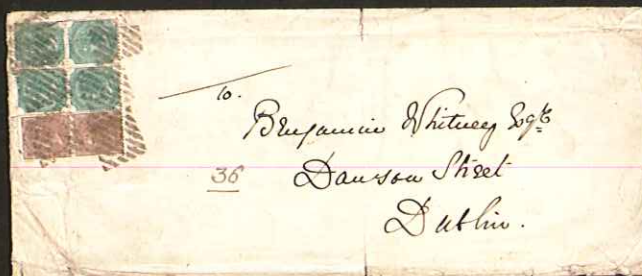 to.
Benjamin Whitney Esqre
36
Dawson Street
Dublin.